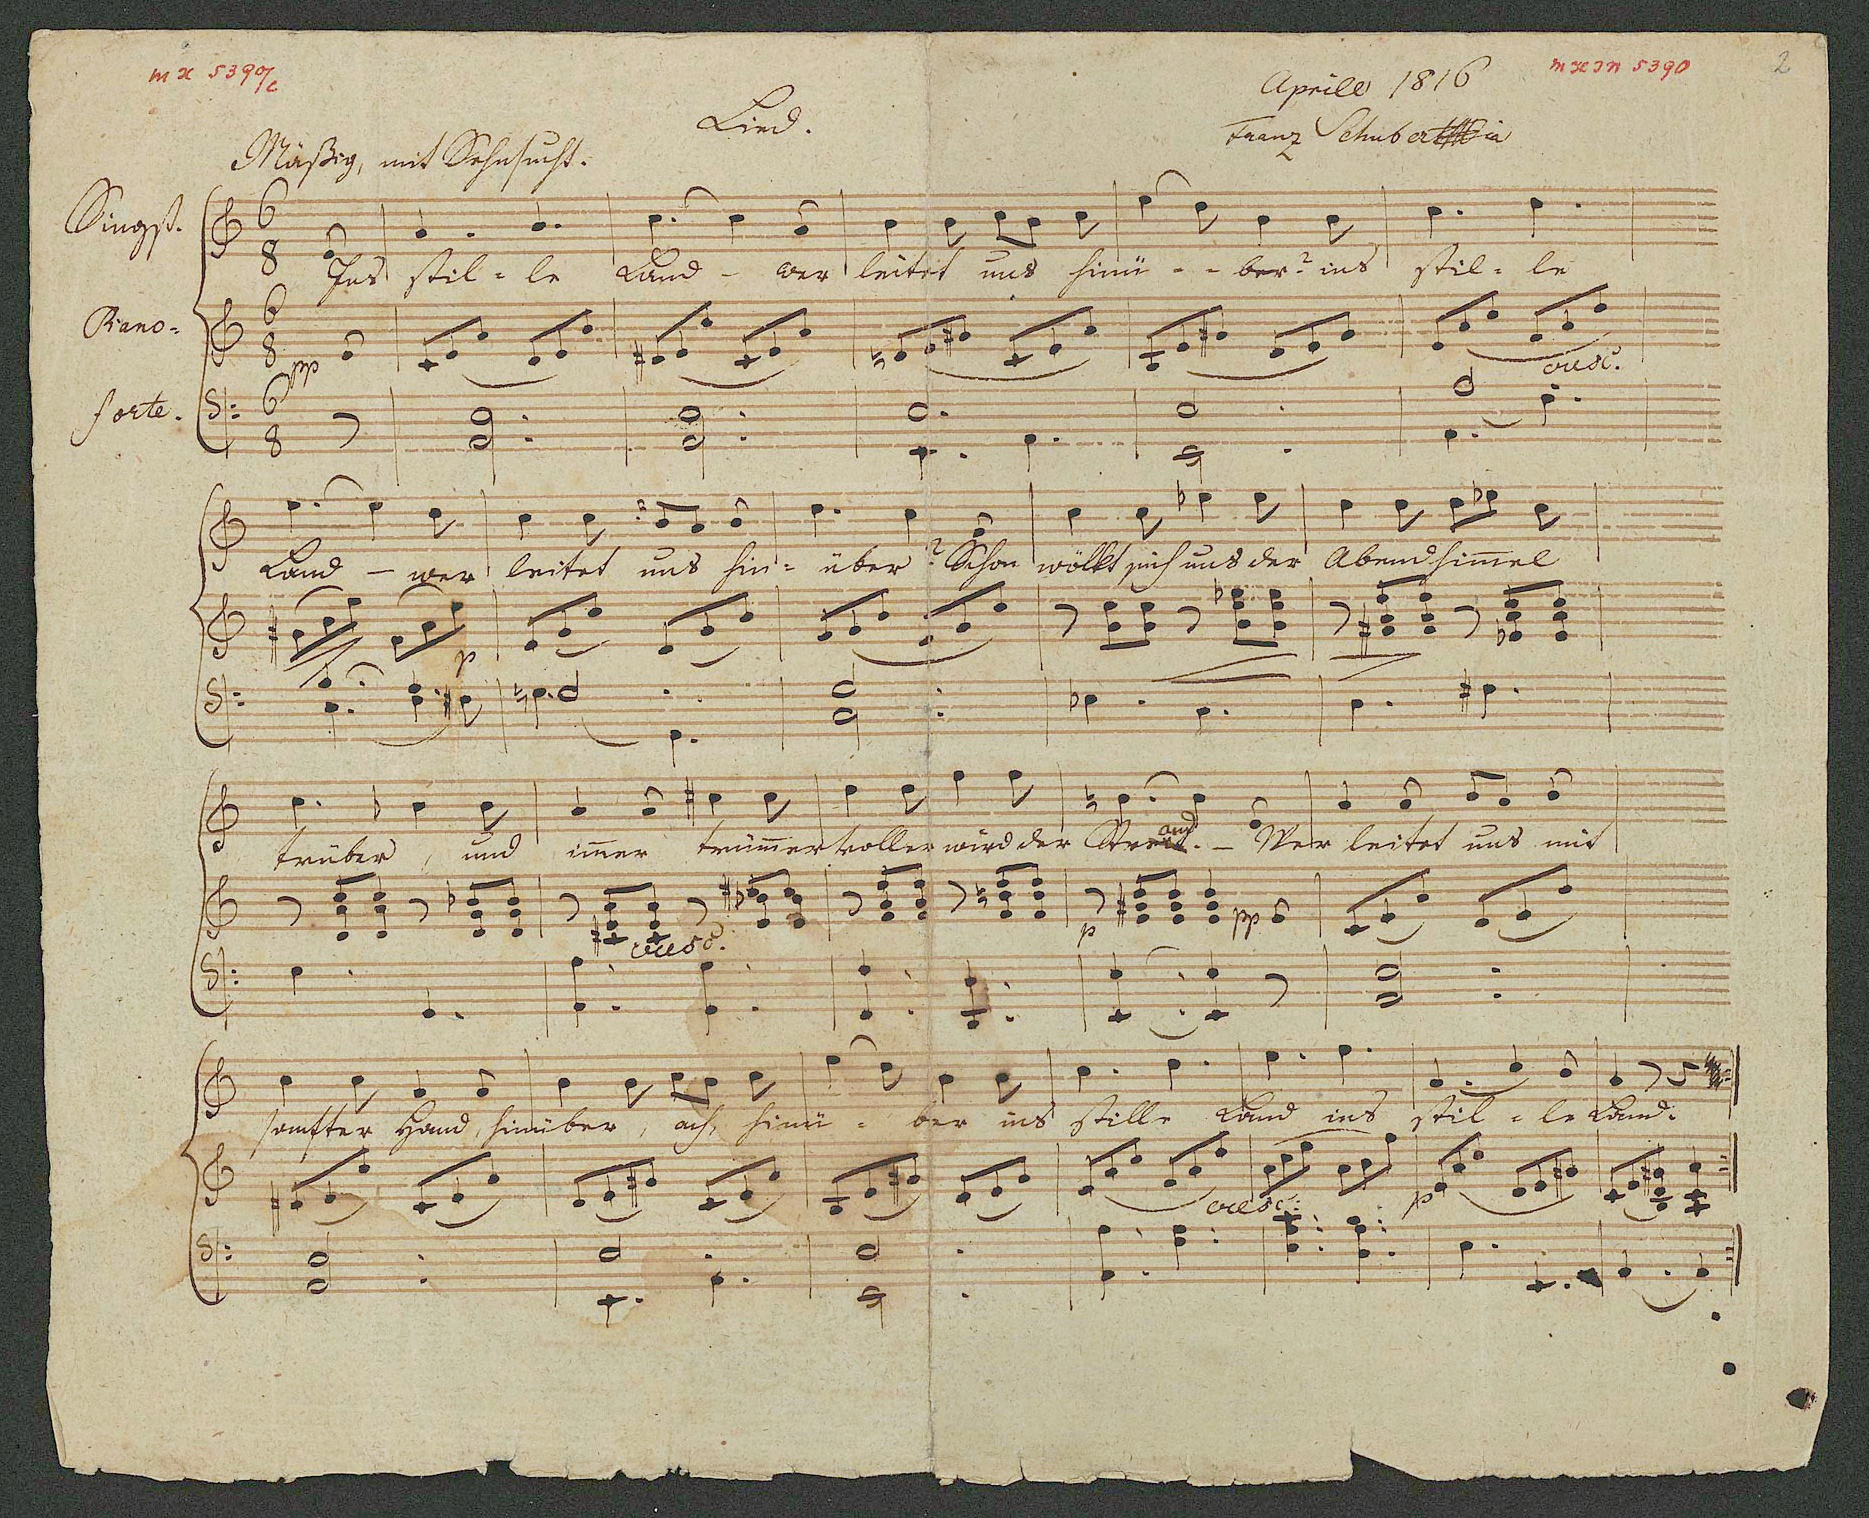 mx 5390/c
Aprill 1816
mxin 5390
2
Lied.
Franz Schubert
Mäßig, mit Sehnsucht.
Singst.
6 8
Ins stil - le Land - wer leitet uns hinü - - ber? ins stil - le
Piano-
6 8
pp
cresc.
forte.
6 8
Land - wer leitet uns hin - über? Schon wölkt sich uns der Abendhimmel
p
trüber, und immer trümmervoller wird der Strand. - Wer leitet uns mit
cresc.
p
pp
sanfter Hand, hinüber, ach, hinü - ber ins stille Land ins stil - le Land.
cresc.
p